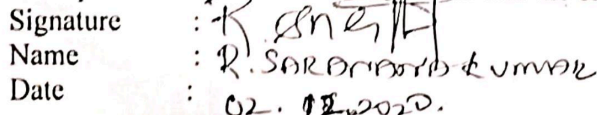 Signature :
Name : R. SARAVANA KUMAR
Date : 02. 12.2020.